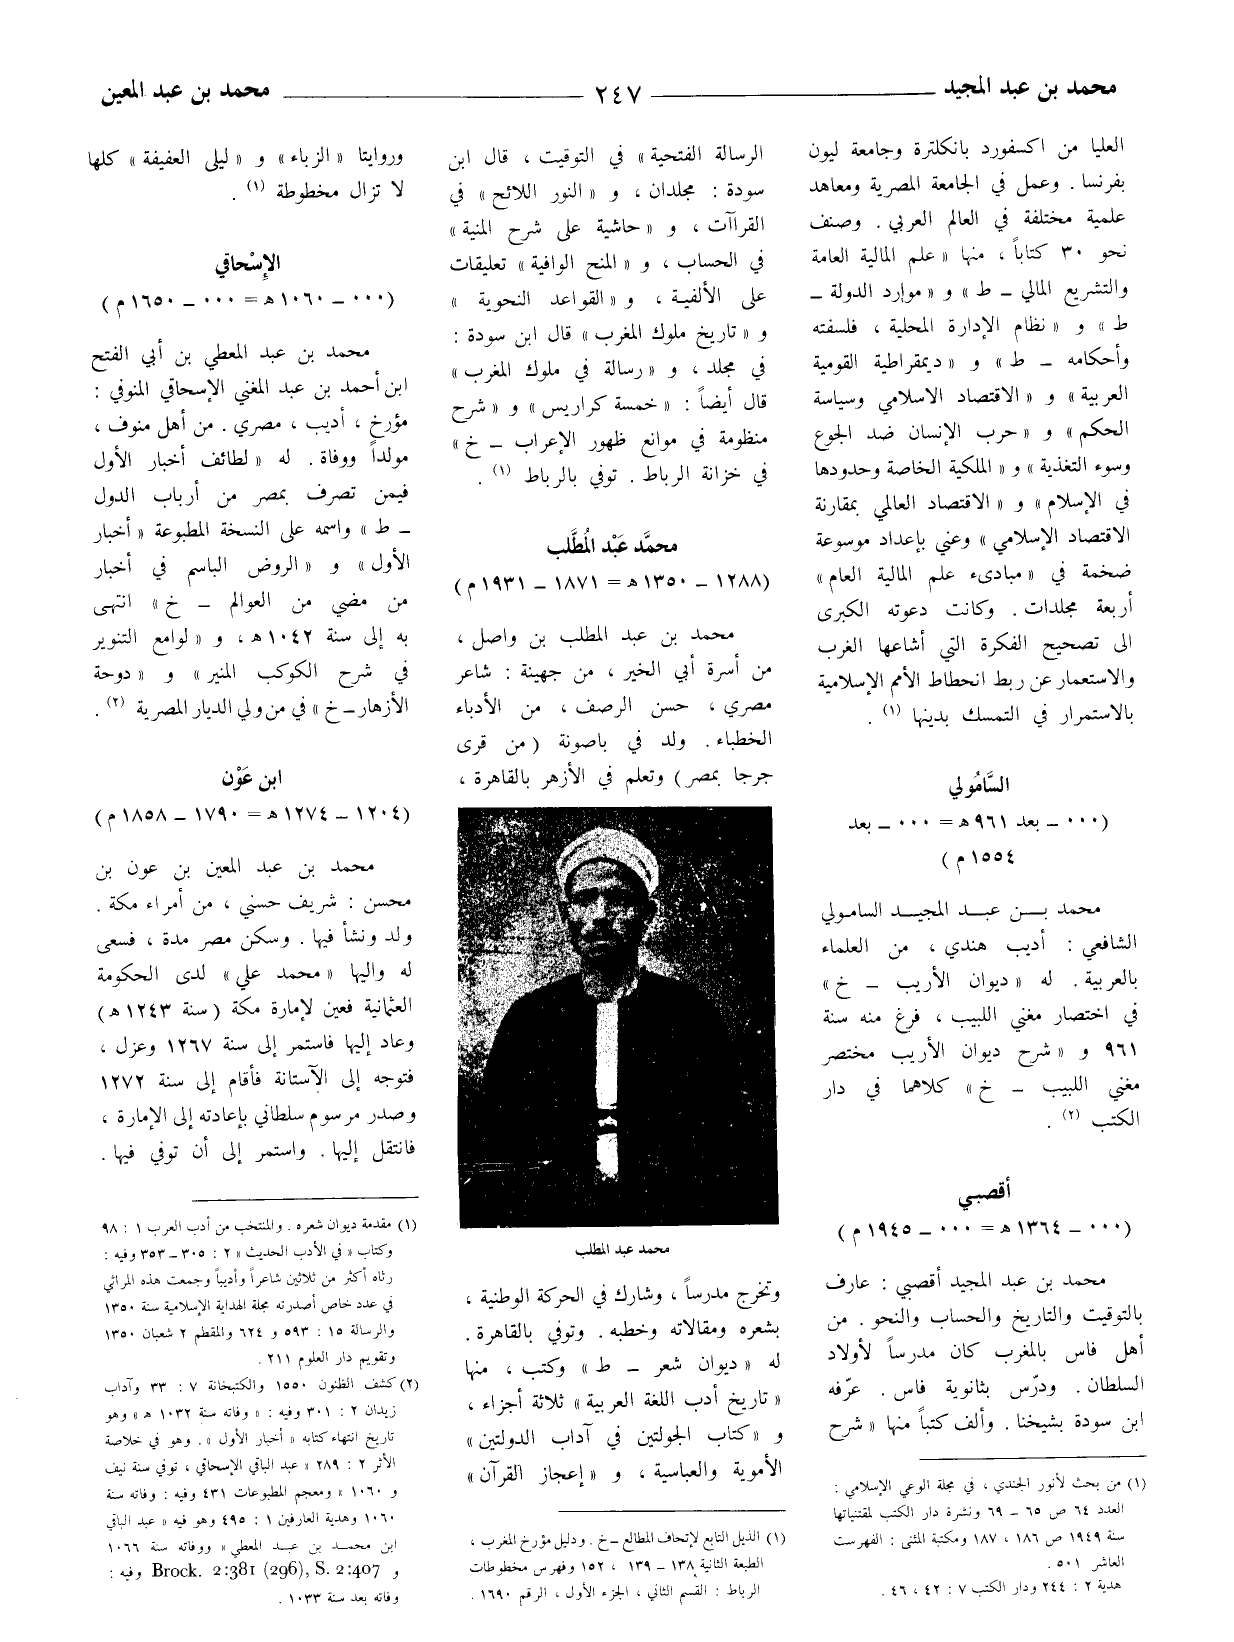 محمد بن عبد المجيد ــــ ٢٤٧ ــــ محمد بن عبد المعين
العليا من اكسفورد بانكلترة وجامعة ليون
بفرنسا . وعمل في الجامعة المصرية ومعاهد
علمية مختلفة في العالم العربي . وصنف
نحو ٣٠ كتاباً ، منها « علم المالية العامة
والتشريع المالي ـ ط » و « موارد الدولة ـ
ط » و « نظام الإدارة المحلية ، فلسفته
وأحكامه ـ ط » و « ديمقراطية القومية
العربية » و « الاقتصاد الاسلامي وسياسة
الحكم » و « حرب الإنسان ضد الجوع
وسوء التغذية » و « الملكية الخاصة وحدودها
في الإسلام » و « الاقتصاد العالمي بمقارنة
الاقتصاد الإسلامي » وعني بإعداد موسوعة
ضخمة في « مبادىء علم المالية العام »
أربعة مجلدات . وكانت دعوته الكبرى
الى تصحيح الفكرة التي أشاعها الغرب
والاستعمار عن ربط انحطاط الأمم الإسلامية
بالاستمرار في التمسك بدينها (١) .
السَّامُولي
(٠٠٠ ـ بعد ٩٦١ هـ = ٠٠٠ ـ بعد
١٥٥٤ م )
محمد بن عبد المجيد السامولي
الشافعي : أديب هندي ، من العلماء
بالعربية . له « ديوان الأريب ـ خ »
في اختصار مغني اللبيب ، فرغ منه سنة
٩٦١ و « شرح ديوان الأريب مختصر
مغني اللبيب ـ خ » كلاهما في دار
الكتب (٢) .
أقصبي
(٠٠٠ ـ ١٣٦٤ هـ = ٠٠٠ ـ ١٩٤٥ م )
محمد بن عبد المجيد أقصبي : عارف
بالتوقيت والتاريخ والحساب والنحو . من
أهل فاس بالمغرب كان مدرساً لأولاد
السلطان . ودرّس بثانوية فاس . عرّفه
ابن سودة بشيخنا . وألف كتباً منها « شرح
(١) من بحث لأنور الجندي ، في مجلة الوعي الإسلامي :
العدد ٦٤ ص ٦٥ ـ ٦٩ ونشرة دار الكتب لمقتنياتها
سنة ١٩٤٩ ص ١٨٦ ، ١٨٧ ومكتبة المثنى : الفهرست
العاشر ٥٠١ .
هدية ٢ : ٢٤٤ ودار الكتب ٧ : ٤٢ ، ٤٦ .
الرسالة الفتحية » في التوقيت ، قال ابن
سودة : مجلدان ، و « النور اللائح » في
القراآت ، و « حاشية على شرح المنية »
في الحساب ، و « المنح الوافية » تعليقات
على الألفية ، و « القواعد النحوية »
و « تاريخ ملوك المغرب » قال ابن سودة :
في مجلد ، و « رسالة في ملوك المغرب »
قال أيضاً : « خمسة كراريس » و « شرح
منظومة في موانع ظهور الإعراب ـ خ »
في خزانة الرباط . توفي بالرباط (١) .
محمَّد عَبْد المُطَّلب
(١٢٨٨ ـ ١٣٥٠ هـ = ١٨٧١ ـ ١٩٣١ م )
محمد بن عبد المطلب بن واصل ،
من أسرة أبي الخير ، من جهينة : شاعر
مصري ، حسن الرصف ، من الأدباء
الخطباء . ولد في باصونة ( من قرى
جرجا بمصر ) وتعلم في الأزهر بالقاهرة ،
محمد عبد المطلب
وتخرج مدرساً ، وشارك في الحركة الوطنية ،
بشعره ومقالاته وخطبه . وتوفي بالقاهرة .
له « ديوان شعر ـ ط » وكتب ، منها
« تاريخ أدب اللغة العربية » ثلاثة أجزاء ،
و « كتاب الجولتين في آداب الدولتين »
الأموية والعباسية ، و « إعجاز القرآن »
(١) الذيل التابع لإتحاف المطالع ـ خ . ودليل مؤرخ المغرب ،
الطبعة الثانية ١٣٨ ـ ١٣٩ ، ١٥٢ وفهرس مخطوطات
الرباط : القسم الثاني ، الجزء الأول ، الرقم ١٦٩٠ .
وروايتا « الزباء » و « ليلى العفيفة » كلها
لا تزال مخطوطة (١) .
الإسْحاقي
(٠٠٠ ـ ١٠٦٠ هـ = ٠٠٠ ـ ١٦٥٠ م )
محمد بن عبد المعطي بن أبي الفتح
ابن أحمد بن عبد المغني الإسحاقي المنوفي :
مؤرخ ، أديب ، مصري . من أهل منوف ،
مولداً ووفاة . له « لطائف أخبار الأول
فيمن تصرف بمصر من أرباب الدول
ـ ط » واسمه على النسخة المطبوعة « أخبار
الأول » و « الروض الباسم في أخبار
من مضي من العوالم ـ خ » انتهى
به إلى سنة ١٠٤٢ هـ ، و « لوامع التنوير
في شرح الكوكب المنير » و « دوحة
الأزهار ـ خ » في من ولي الديار المصرية (٢) .
ابن عَوْن
(١٢٠٤ ـ ١٢٧٤ هـ = ١٧٩٠ ـ ١٨٥٨ م )
محمد بن عبد المعين بن عون بن
محسن : شريف حسني ، من أمراء مكة .
ولد ونشأ فيها . وسكن مصر مدة ، فسعى
له واليها « محمد علي » لدى الحكومة
العثمانية فعين لإمارة مكة ( سنة ١٢٤٣ هـ )
وعاد إليها فاستمر إلى سنة ١٢٦٧ وعزل ،
فتوجه إلى الآستانة فأقام إلى سنة ١٢٧٢
وصدر مرسوم سلطاني بإعادته إلى الإمارة ،
فانتقل إليها . واستمر إلى أن توفي فيها .
(١) مقدمة ديوان شعره . والمنتخب من أدب العرب ١ : ٩٨
وكتاب « في الأدب الحديث » ٢ : ٣٠٥ ـ ٣٥٣ وفيه :
رثاه أكثر من ثلاثين شاعراً وأديباً وجمعت هذه المراثي
في عدد خاص أصدرته مجلة الهداية الإسلامية سنة ١٣٥٠
والرسالة ١٥ : ٥٩٣ و ٦٢٤ والمقطم ٢ شعبان ١٣٥٠
وتقويم دار العلوم ٢١١ .
(٢) كشف الظنون ١٥٥٠ والكتبخانة ٧ : ٣٣ وآداب
زيدان ٢ : ٣٠١ وفيه : « وفاته سنة ١٠٣٢ هـ » وهو
تاريخ انتهاء كتابه « أخبار الأول » . وهو في خلاصة
الأثر ٢ : ٢٨٩ « عبد الباقي الإسحاقي ، توفي سنة نيف
و ١٠٦٠ » ومعجم المطبوعات ٤٣١ وفيه : وفاته سنة
١٠٦٠ وهدية العارفين ١ : ٤٩٥ وهو فيه « عبد الباقي
ابن محمد بن عبد المعطي » ووفاته سنة ١٠٦٦
و Brock. 2:381 (296), S. 2:407 وفيه :
وفاته بعد سنة ١٠٣٣ .